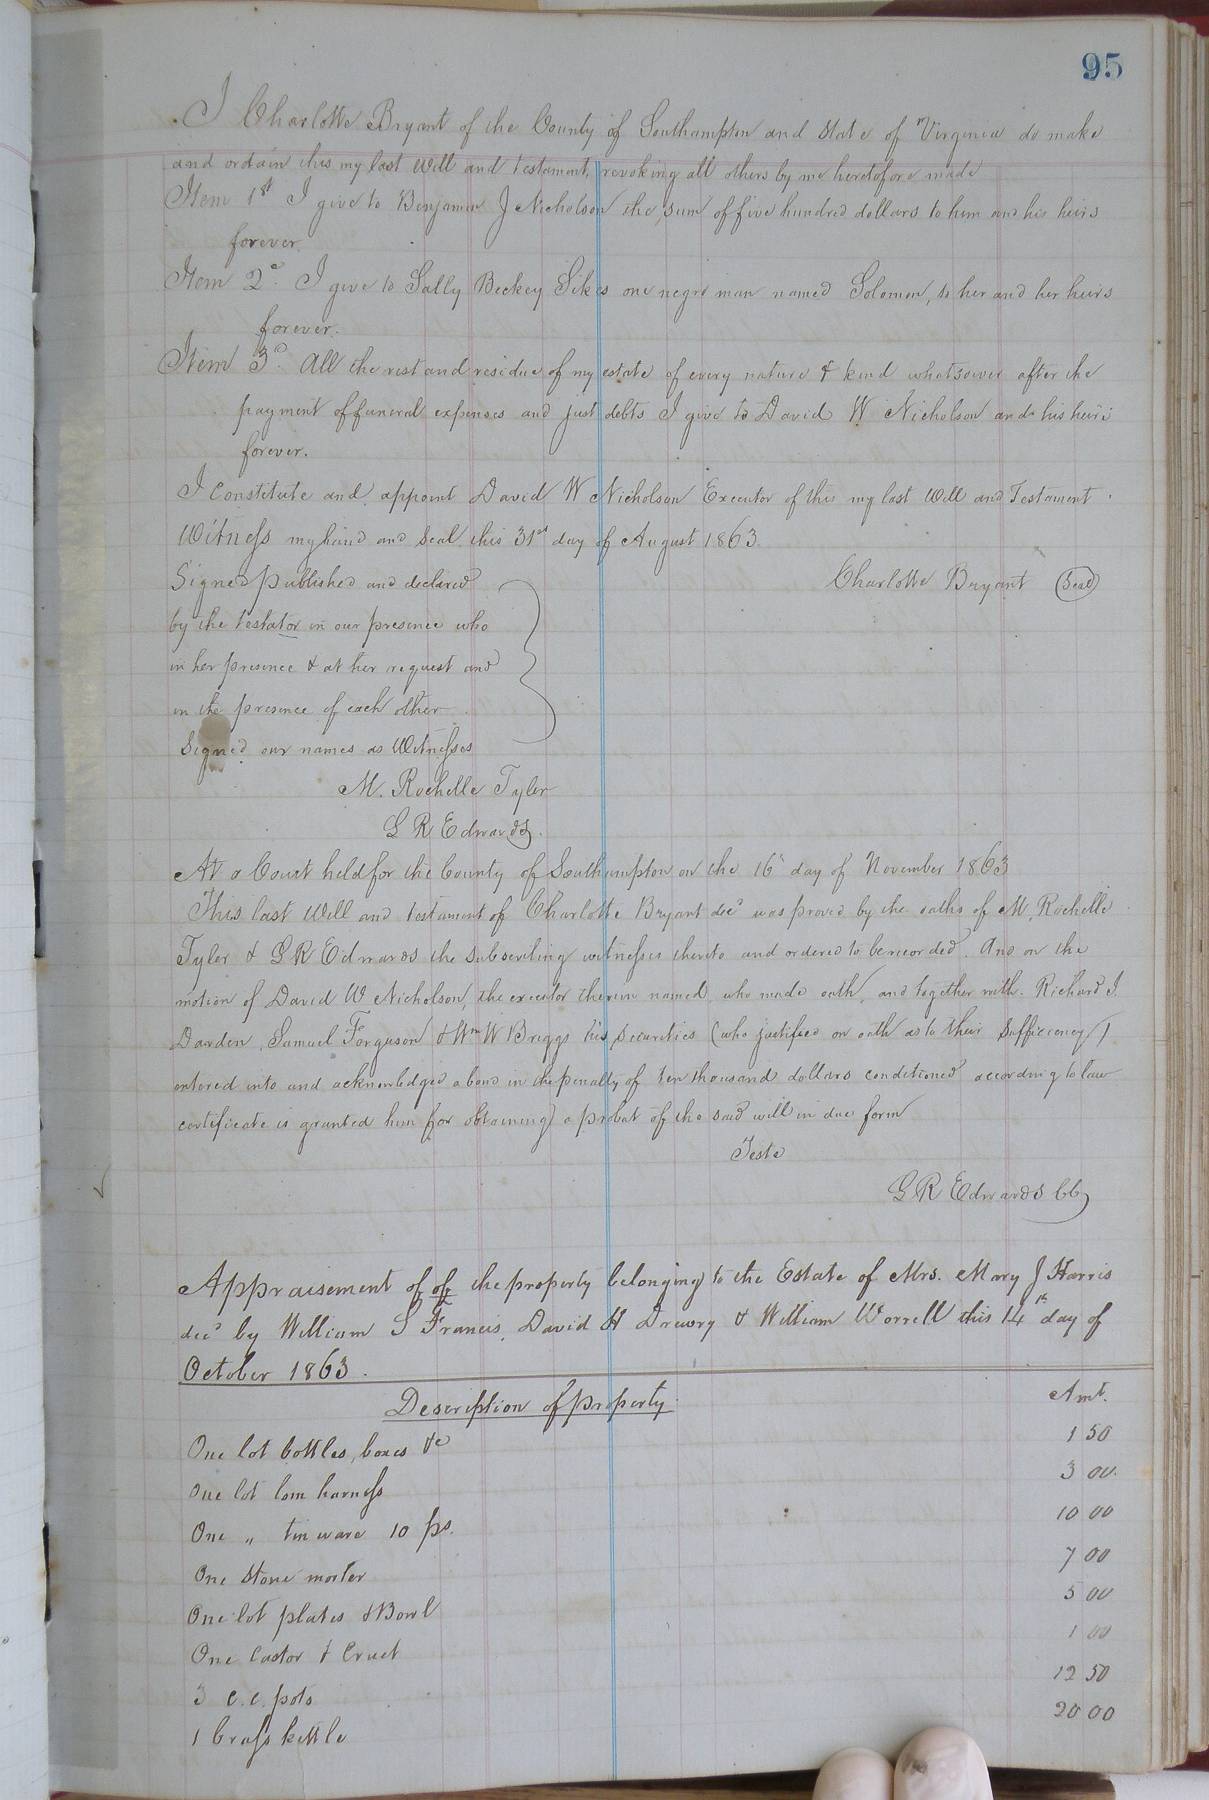 95
I Charlotte Bryant of the County of Southampton and State of Virginia do make
and ordain this my last Will and testament, revoking all others by me heretofore made
Item 1st I give to Benjamin J Nicholson the sum of five hundred dollars to him and his heirs
forever.
Item 2d I give to Sally Beckey Sikes one negro man named Solomon, to her and her heirs
forever.
Item 3d All the rest and residue of my estate of every nature & kind whatsoever after the
payment of funeral expenses and just debts I give to David W Nicholson and his heirs
forever.
I Constitute and appoint David W Nicholson Executor of this my last Will and Testament.
Witness my hand and Seal this 31st day of August 1863.
Signed published and declared
Charlotte Bryant (Seal)
by the testator in our presence who
in her presence & at her request and
in the presence of each other
Signed our names as Witnesses
M. Rochelle Tyler
G R Edwards.
At a Court held for the County of Southampton on the 16th day of November 1863
This last Will and testament of Charlotte Bryant decd was proved by the oaths of M. Rochelle
Tyler & G R Edwards the subscribing witnesses thereto and ordered to be recorded. And on the
motion of David W Nicholson, the executor therein named, who made oath, and together with Richard J.
Darden, Samuel Ferguson & Wm W Briggs his securities (who justified on oath as to their Sufficiency)
entered into and acknowledged a bond in the penalty of ten thousand dollars conditioned according to law
certificate is granted him for obtaining a probat of the said will in due form
Teste
G R Edwards CC
Appraisement of of the property belonging to the Estate of Mrs. Mary J Harris
decd by William S Francis, David H Drewry & William Worrell this 14th day of
October 1863.
Description of property. Amt.
One lot bottles, boxes &c 1 50
One lot lom harness 3 00
One " tin ware 10 ps. 10 00
One Stone morter 7 00
One lot plates & Bowl 5 00
One Castor & Cruet 1 00
3 C.C. pots 12 50
1 brass kettle 20 00